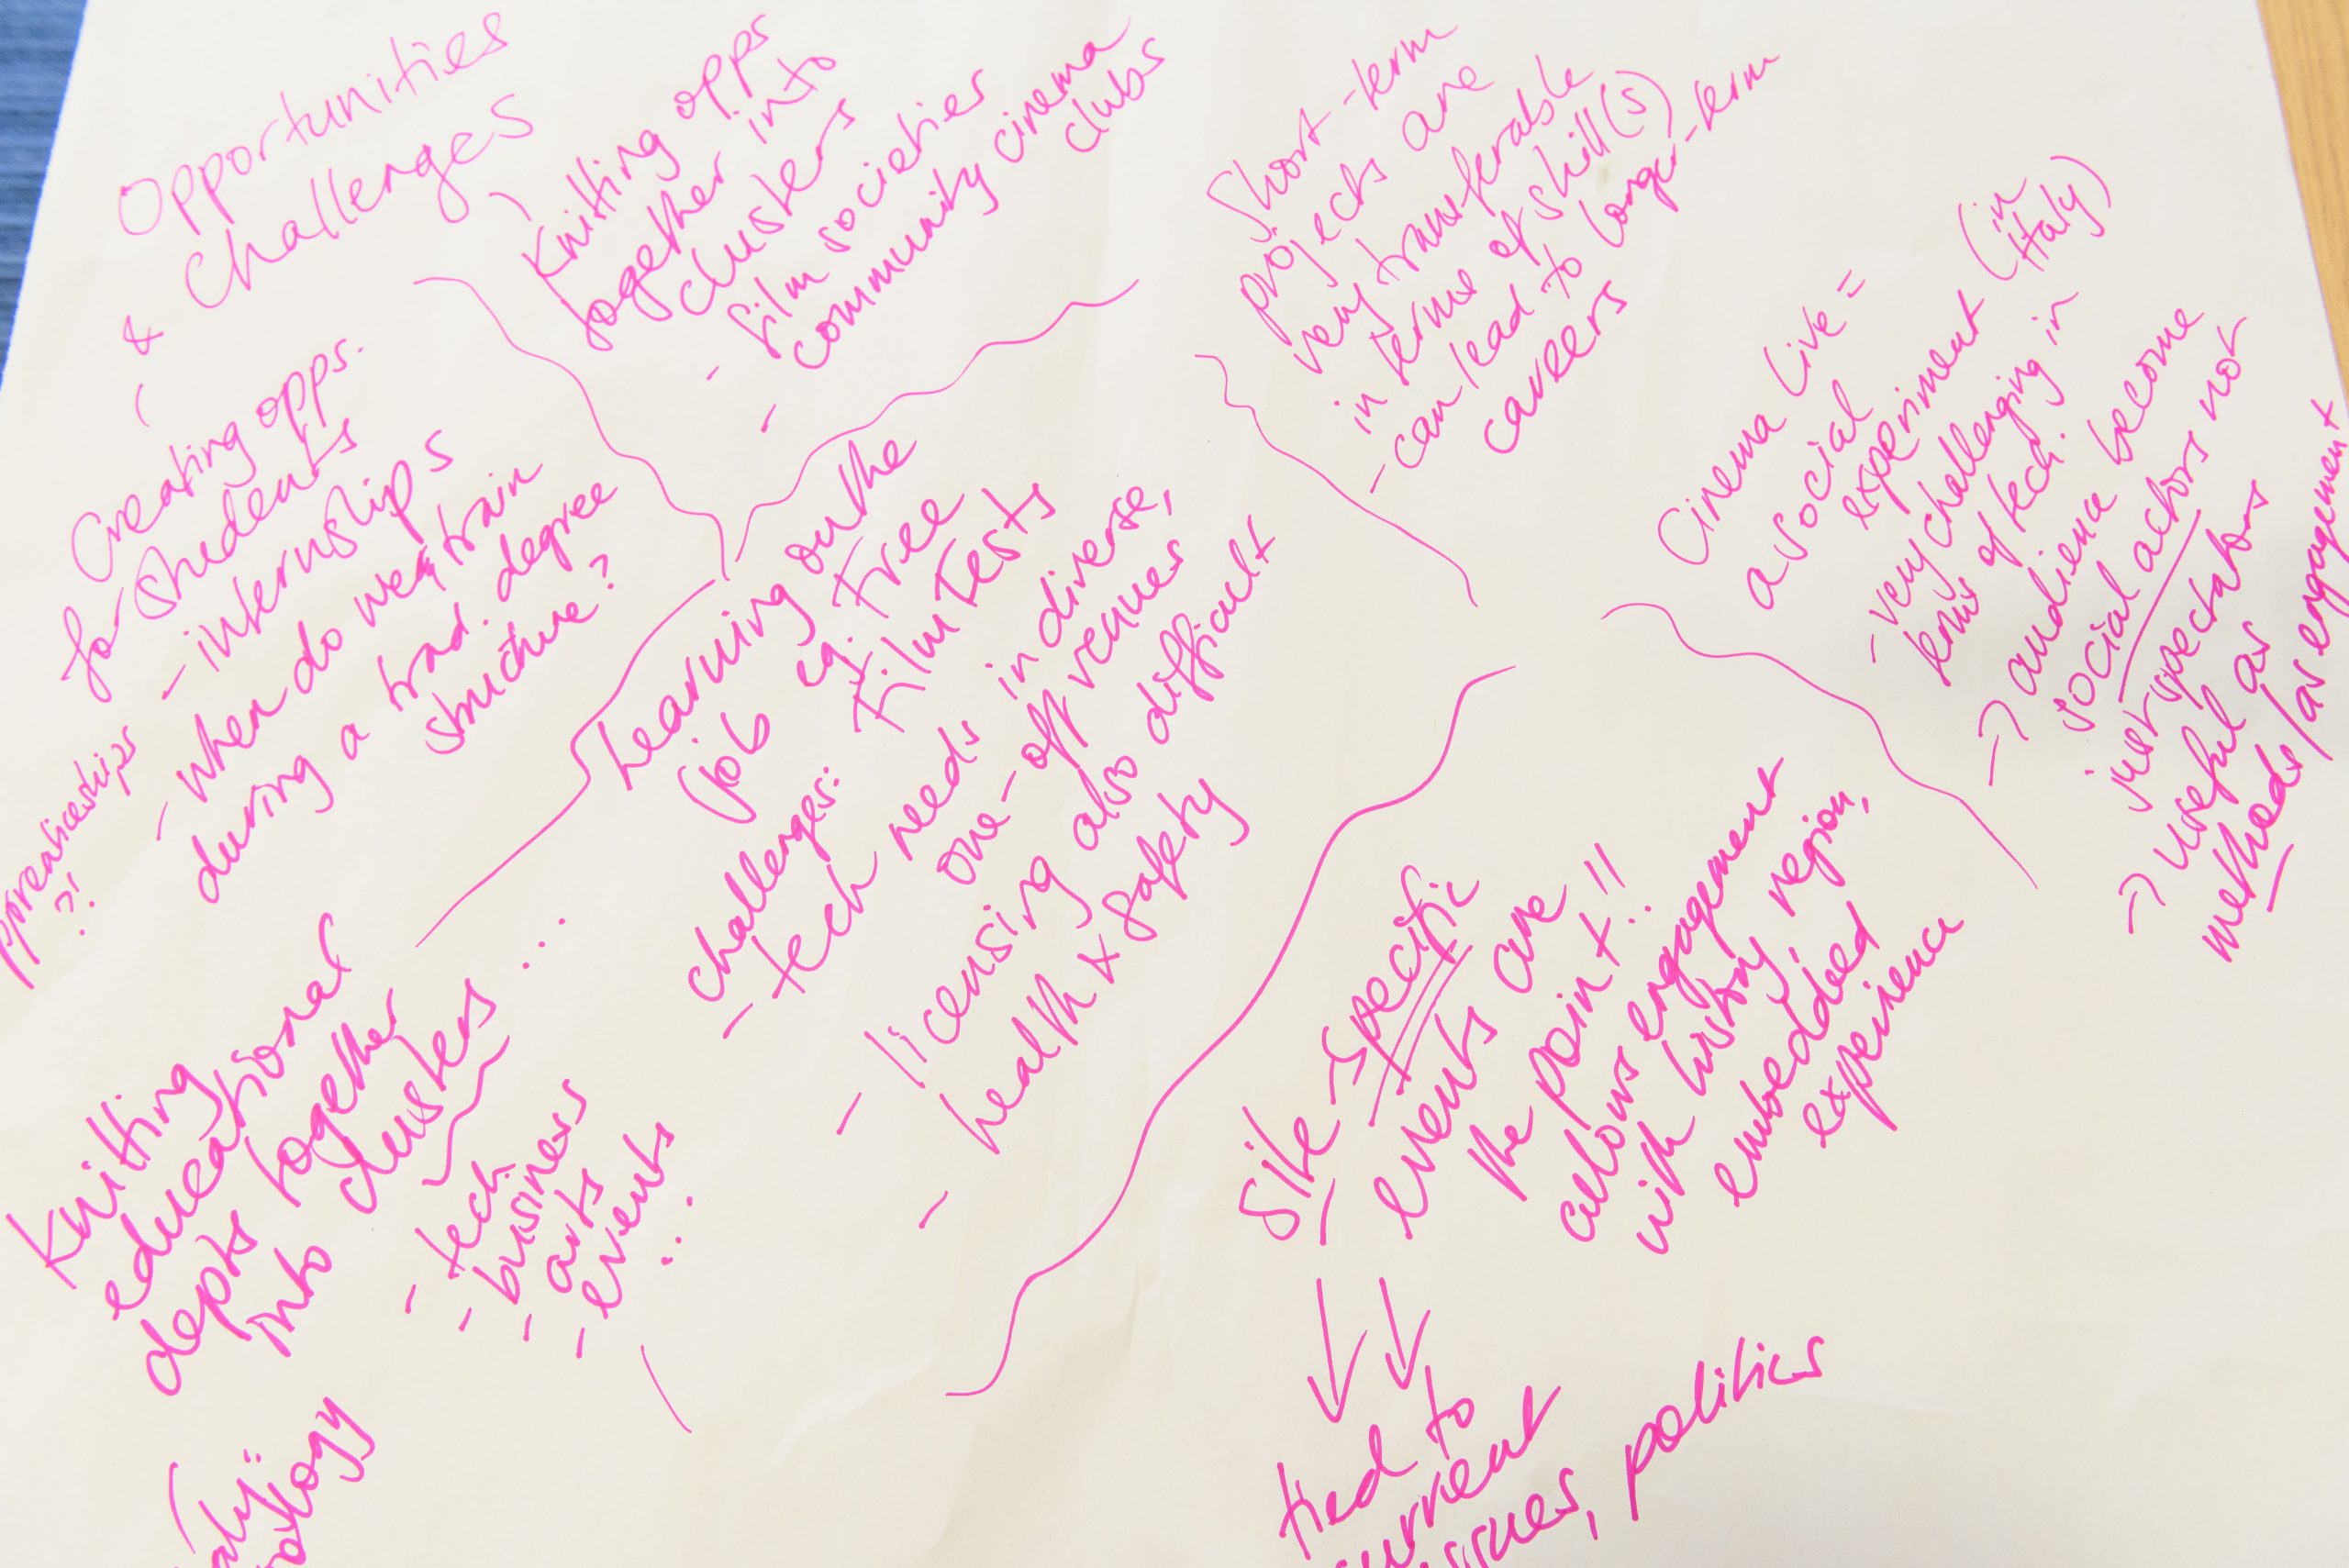 Opportunities
& challenges
Creating opps.
for students
- internships
- when do we train
during a trad. degree
structure?
?!
Knitting opps
together into
clusters
- film societies
- community cinema
clubs
Short-term
projects are
very transferable
in terms of skill(s)
- can lead to longer-term
careers
Cinema Live =
a social
experiment (in
Italy)
- very challenging in
terms of tech.
→ audience become
social actors not
just spectators
→ useful as
methods/as engagement
Learning on the
job eg. Free
Film Fests
challenges:
- tech needs in diverse,
one-off venues
- licensing also difficult
- health & safety
Knitting
educational
depts together
into clusters...
- tech.
- business
- arts
- events
...
Site-specific
events are
the point!!
allows engagement
with history, region,
embedded
experience
tied to
politics